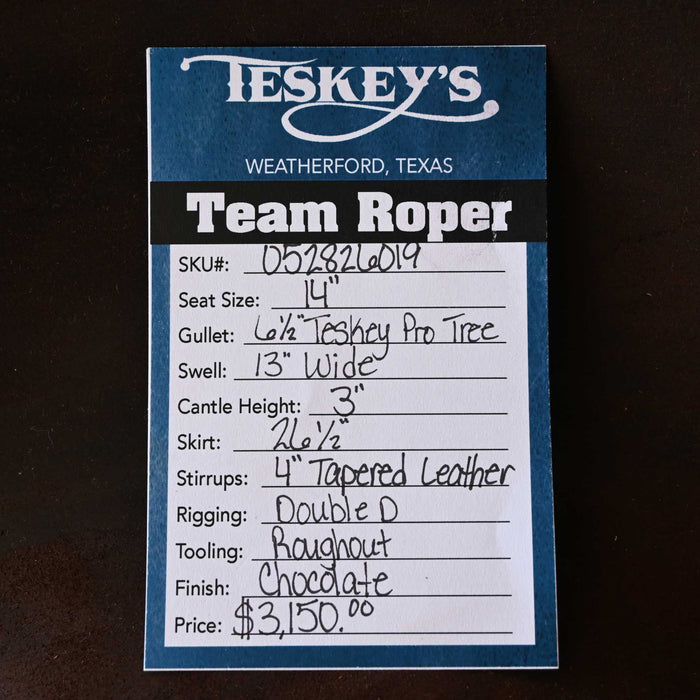 TESKEY'S
WEATHERFORD, TEXAS
Team Roper
SKU#: 052826019
Seat Size: 14"
Gullet: 6½" Teskey Pro Tree
Swell: 13" Wide
Cantle Height: 3"
Skirt: 26½"
Stirrups: 4" Tapered Leather
Rigging: Double D
Tooling: Roughout
Finish: Chocolate
Price: $3,150.00